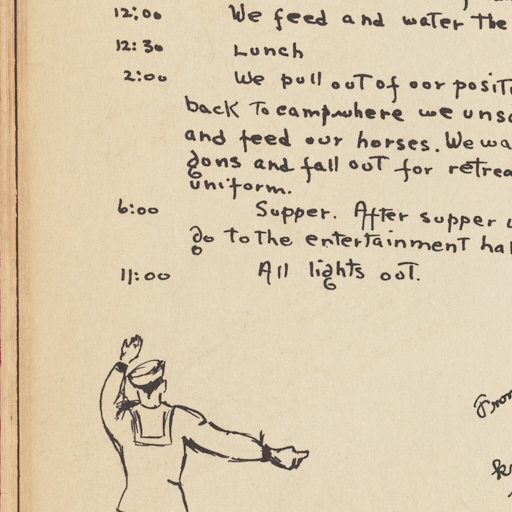 12:00 We feed and water the
12:30 Lunch
2:00 We pull out of our
back to camp where we
and feed our horses. We
guns and fall out for
uniform.
6:00 Supper. After supper
go to the entertainment
11:00 All lights out.